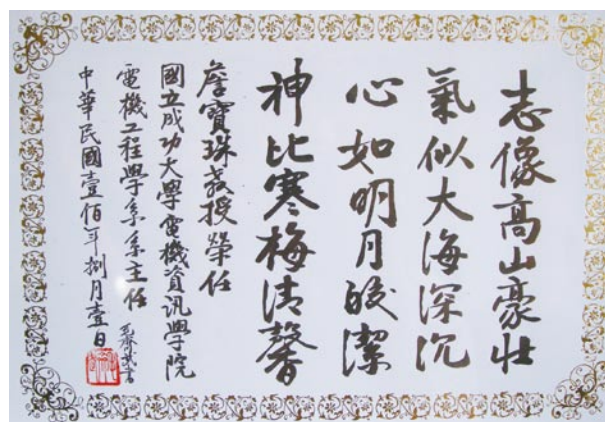 志像高山豪壯
氣似大海深沉
心如明月皎潔
神比寒梅清馨
詹寶珠教授榮任
國立成功大學電機資訊學院
電機工程學系系主任
中華民國壹佰年捌月壹日